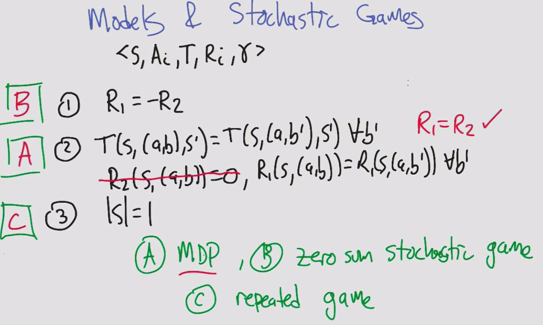 Models & Stochastic Games
<S, Ai, T, Ri, γ>
B ① R₁ = -R₂
A ② T(s,(a,b),s')=T(s,(a,b'),s') ∀b' R₁=R₂ ✓
R₂(s,(a,b))=0, R₁(s,(a,b))=R₁(s,(a,b')) ∀b'
C ③ |S|=1
Ⓐ MDP, Ⓑ zero sum stochastic game
Ⓒ repeated game